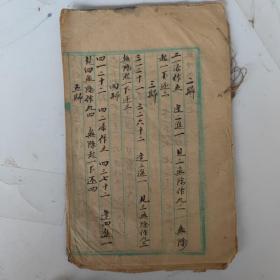 二歸
二一添作五 逢二進一 見二無除作九二 無除
起一下还二
三歸
三一三十一 三二六十二 逢三進一 見三無除作九三
無除起一下还三
四歸
四一二十二 四二添作五 四三七十二 逢四進一
見四無除作九四 無除起一下还四
五歸